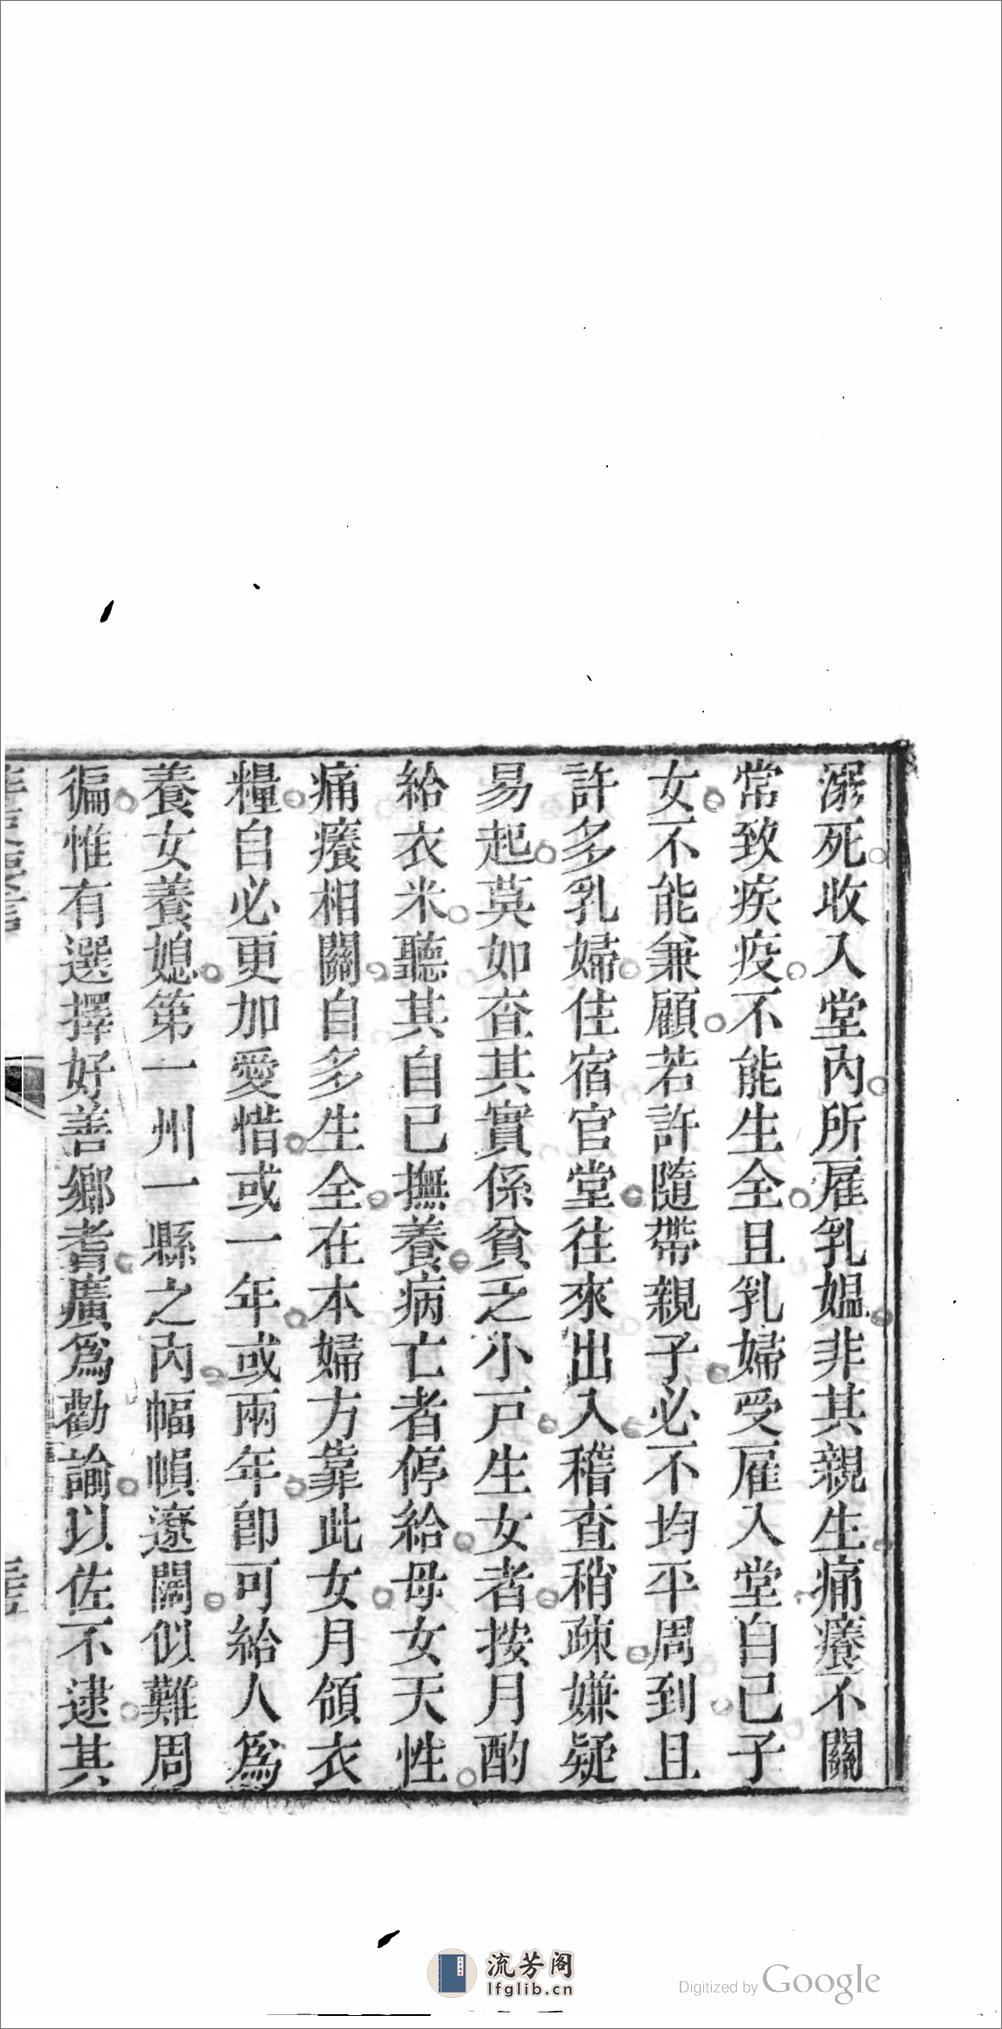 溺死收入堂內所雇乳媼非其親生痛癢不關
常致疾疫不能生全且乳婦受雇入堂自己子
女不能兼顧若許隨帶親子必不均平周到且
許多乳婦住宿官堂往來出入稽查稍疎嫌疑
易起莫如查其實係貧乏小戸生女者按月酌
給衣米聽其自已撫養病亡者停給母女天性
痛癢相關自多生全在本婦方靠此女月領衣
糧自必更加愛惜或一年或兩年卽可給人爲
養女養媳第一州一縣之內幅幀遼闊似難周
徧惟有選擇好善鄉耆廣爲勸諭以佐不逮其
流芳阁
lfglib.cn
Digitized by Google